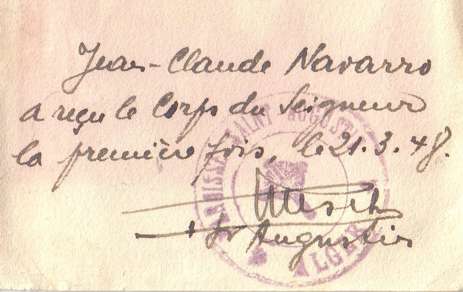 Jean-Claude Navarro
a reçu le Corps du Seigneur
la première fois, le 21.3.48.
St Augustin
PAROISSE SAINT AUGUSTIN
ALGER